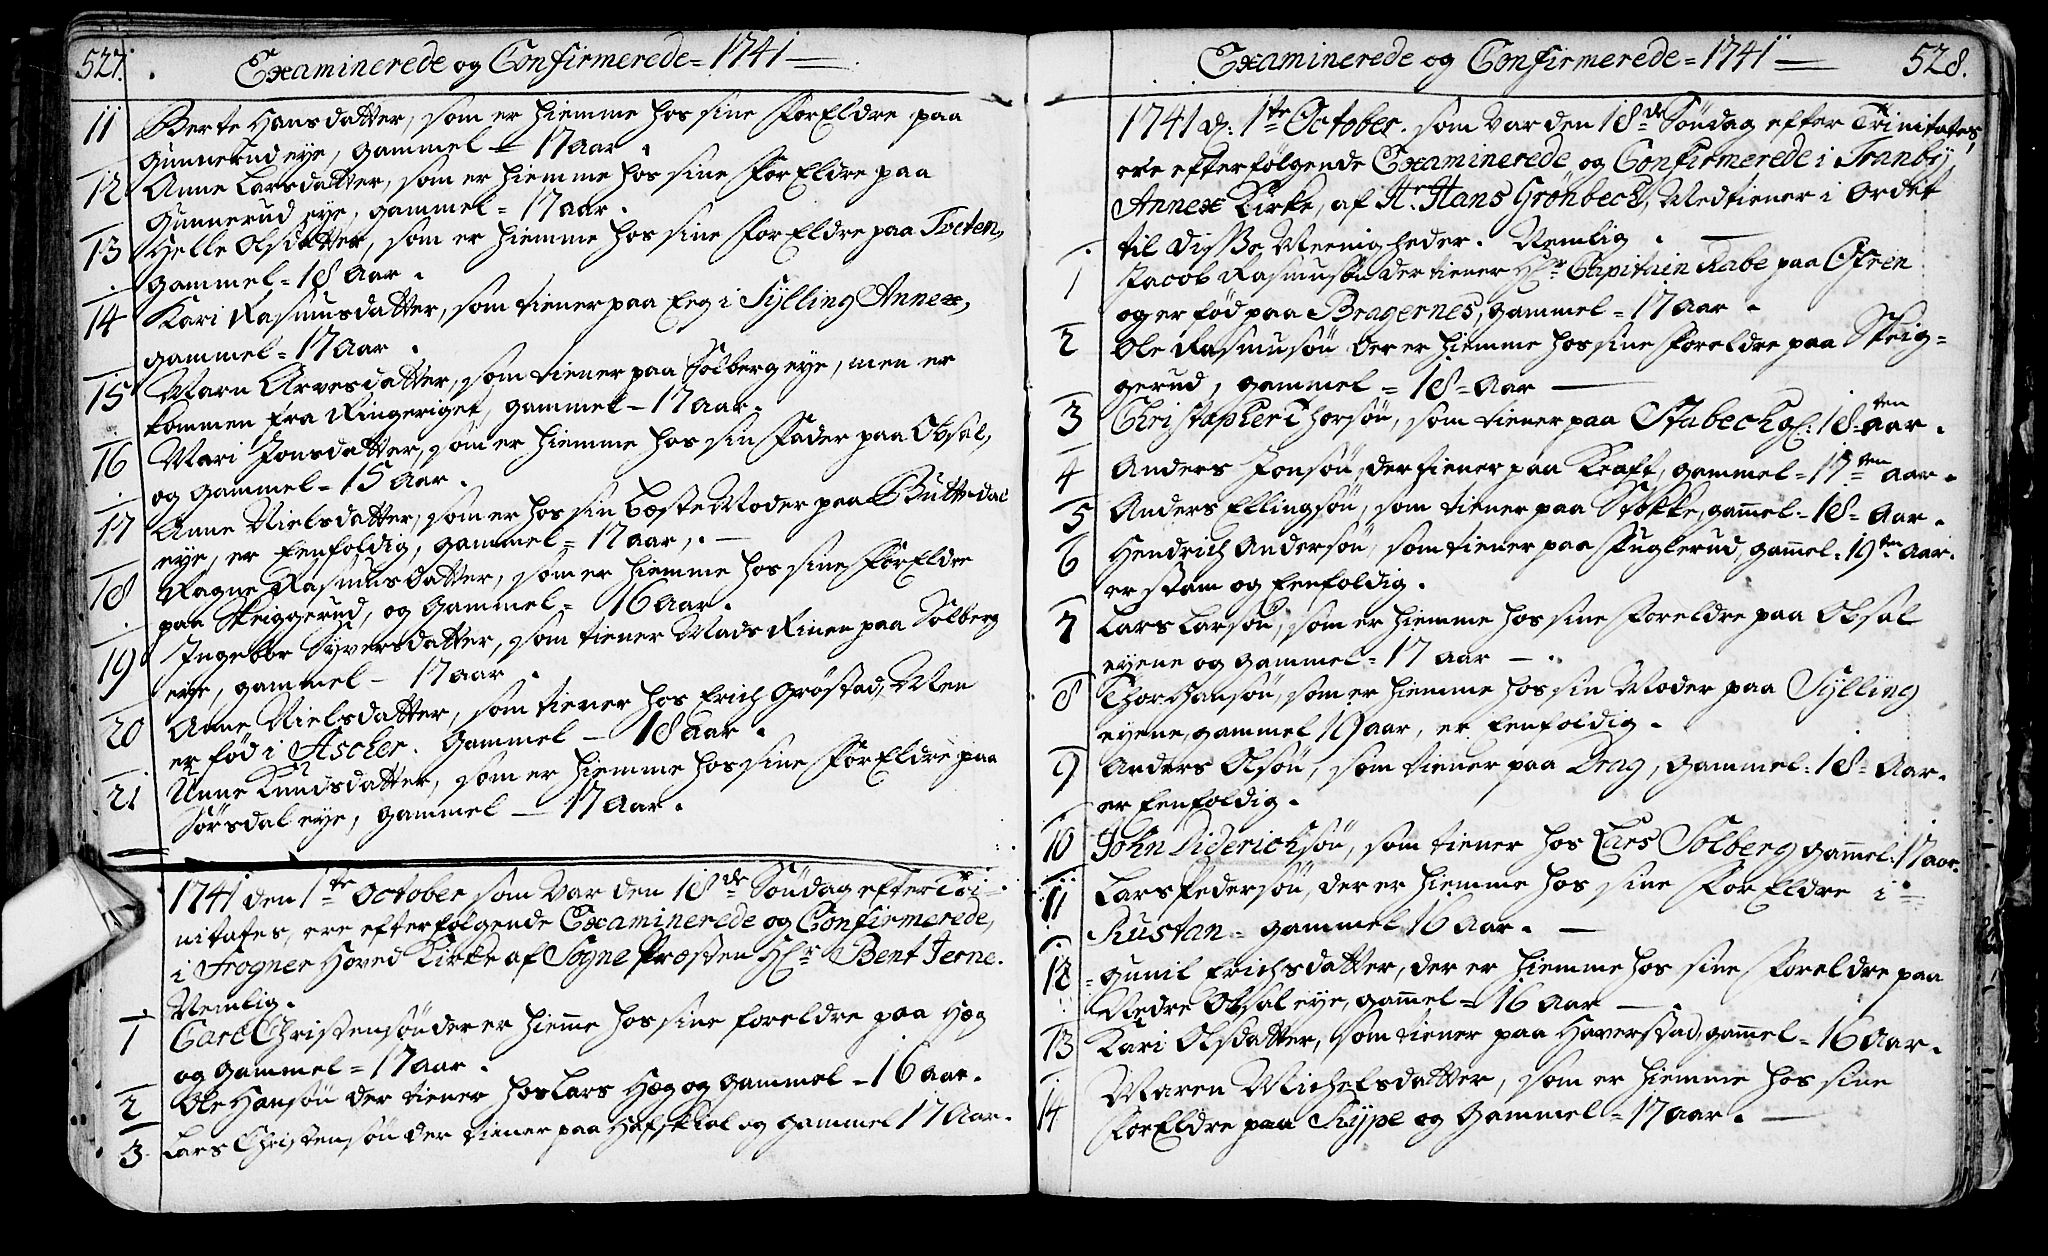 527.
Examinerede og Confirmerede = 1741 —
11 Berte Hansdatter, som er hiemme hos sine ForEldre paa
Gunnerud eye, gammel — 17 aar.
12 Anne Larsdatter, som er hiemme hos sine ForEldre paa
Gunnerud eye, gammel = 17 aar.
13 Helle Olsdatter, som er hiemme hos sine ForEldre paa Tveten,
gammel = 18 aar.
14 Kari Rasmusdatter, som tiener paa Eeg i Sylling Annex,
gammel = 17 aar.
15 Marn Arvesdatter, som tiener paa Solberg eye, men er
kommen fra Ringeriget, gammel — 17 aar.
16 Mari Jonsdatter, som er hiemme hos sin Fader paa Obsal,
og gammel — 15 aar.
17 Anne Nielsdatter, som er hos sin Bæste Moder paa Buttedal
eye, er Eenfoldig, gammel = 17 aar, . —
18 Ragne Rasmusdatter, som er hiemme hos sine ForEldre
paa Skeiggerud, og gammel = 16 aar.
19 Ingebor Syversdatter, som tiener Mads Rinen paa Solberg
eye, gammel — 17 aar.
20 Anne Nielsdatter, som tiener hos Erich Grøstad, Men
er fød i Ascher. Gammel — 18 aar.
21 Unne Knudsdatter, som er hiemme hos sine ForEldre paa
Sørsdal eye, gammel — 17 aar.
1741 den 1te October som var den 18de Søndag efter Tri-
nitates, ere efterfølgende Examinerede og Confirmerede,
i Frogner Hoved Kirke af Sogne Præsten Hr Bent Jerne.
Nemlig.
1 Carl Christensøn der er hieme hos sine foreldre paa Hæg
og gammel = 17 aar.
2 Ole Hansøn der tiener hos Lars Hæg og gammel — 16 aar.
3 Lars Christensøn der tiener paa og gammel 17 aar.
Examinerede og Confirmerede = 1741 — 528.
1741 d: 1te October. som var den 18de Søndag efter Trinitates,
ere efterfølgende Examinerede og Confirmerede i Tranby
Annex Kirke, af Hr Hans Grønbeck, Medtiener i Ordet
til disse Meenigheder. Nemlig. —
1 Jacob Rasmusøn der tiener Hr Capitain Rabe paa Ofren
og er fød paa Bragernes, gammel = 17 aar.
2 Ole Rasmusøn der er hiemme hos sine foreldre paa Skeig=
gerud, gammel = 18 = aar —
3 Christopher Thorsøn, som tiener paa Stabech g: 18ten aar.
4 Anders Jonsøn, der tiener paa Kraft, gammel = 17ten aar.
5 Anders Ellingsøn, som tiener paa Stokke, gamel = 18 = aar.
6 Hendrich Andersøn, som tiener paa Fuglerud, gamel = 19ten aar.
er stam og Eenfoldig.
7 Lars Larsøn, som er hiemme hos sine foreldre paa Obsal
eyene og gammel = 17 aar —
8 Thor Hansøn, som er hiemme hos sin Moder paa Sylling
eyene, gammel 19 aar, er Eenfoldig.
9 Anders Olsøn, som tiener paa Drag, gammel = 18 = aar.
er Eenfoldig.
10 John Diderichsøn, som tiener hos Lars Solberg gamel: 17 aar.
11 Lars Pedersøn, der er hiemme hos sine ForEldre i
Rustan = gammel 16 aar. —
12 Gunil Erichsdatter, der er hiemme hos sine foreldre paa
Nedre Obsal eye, gamel = 16 aar —
13 Kari Olsdatter, som tiener paa Haverstad, gamel = 16 aar.
14 Maren Michelsdatter, som er hiemme hos sine
ForEldre paa Kyppe og gammel = 17 aar. —